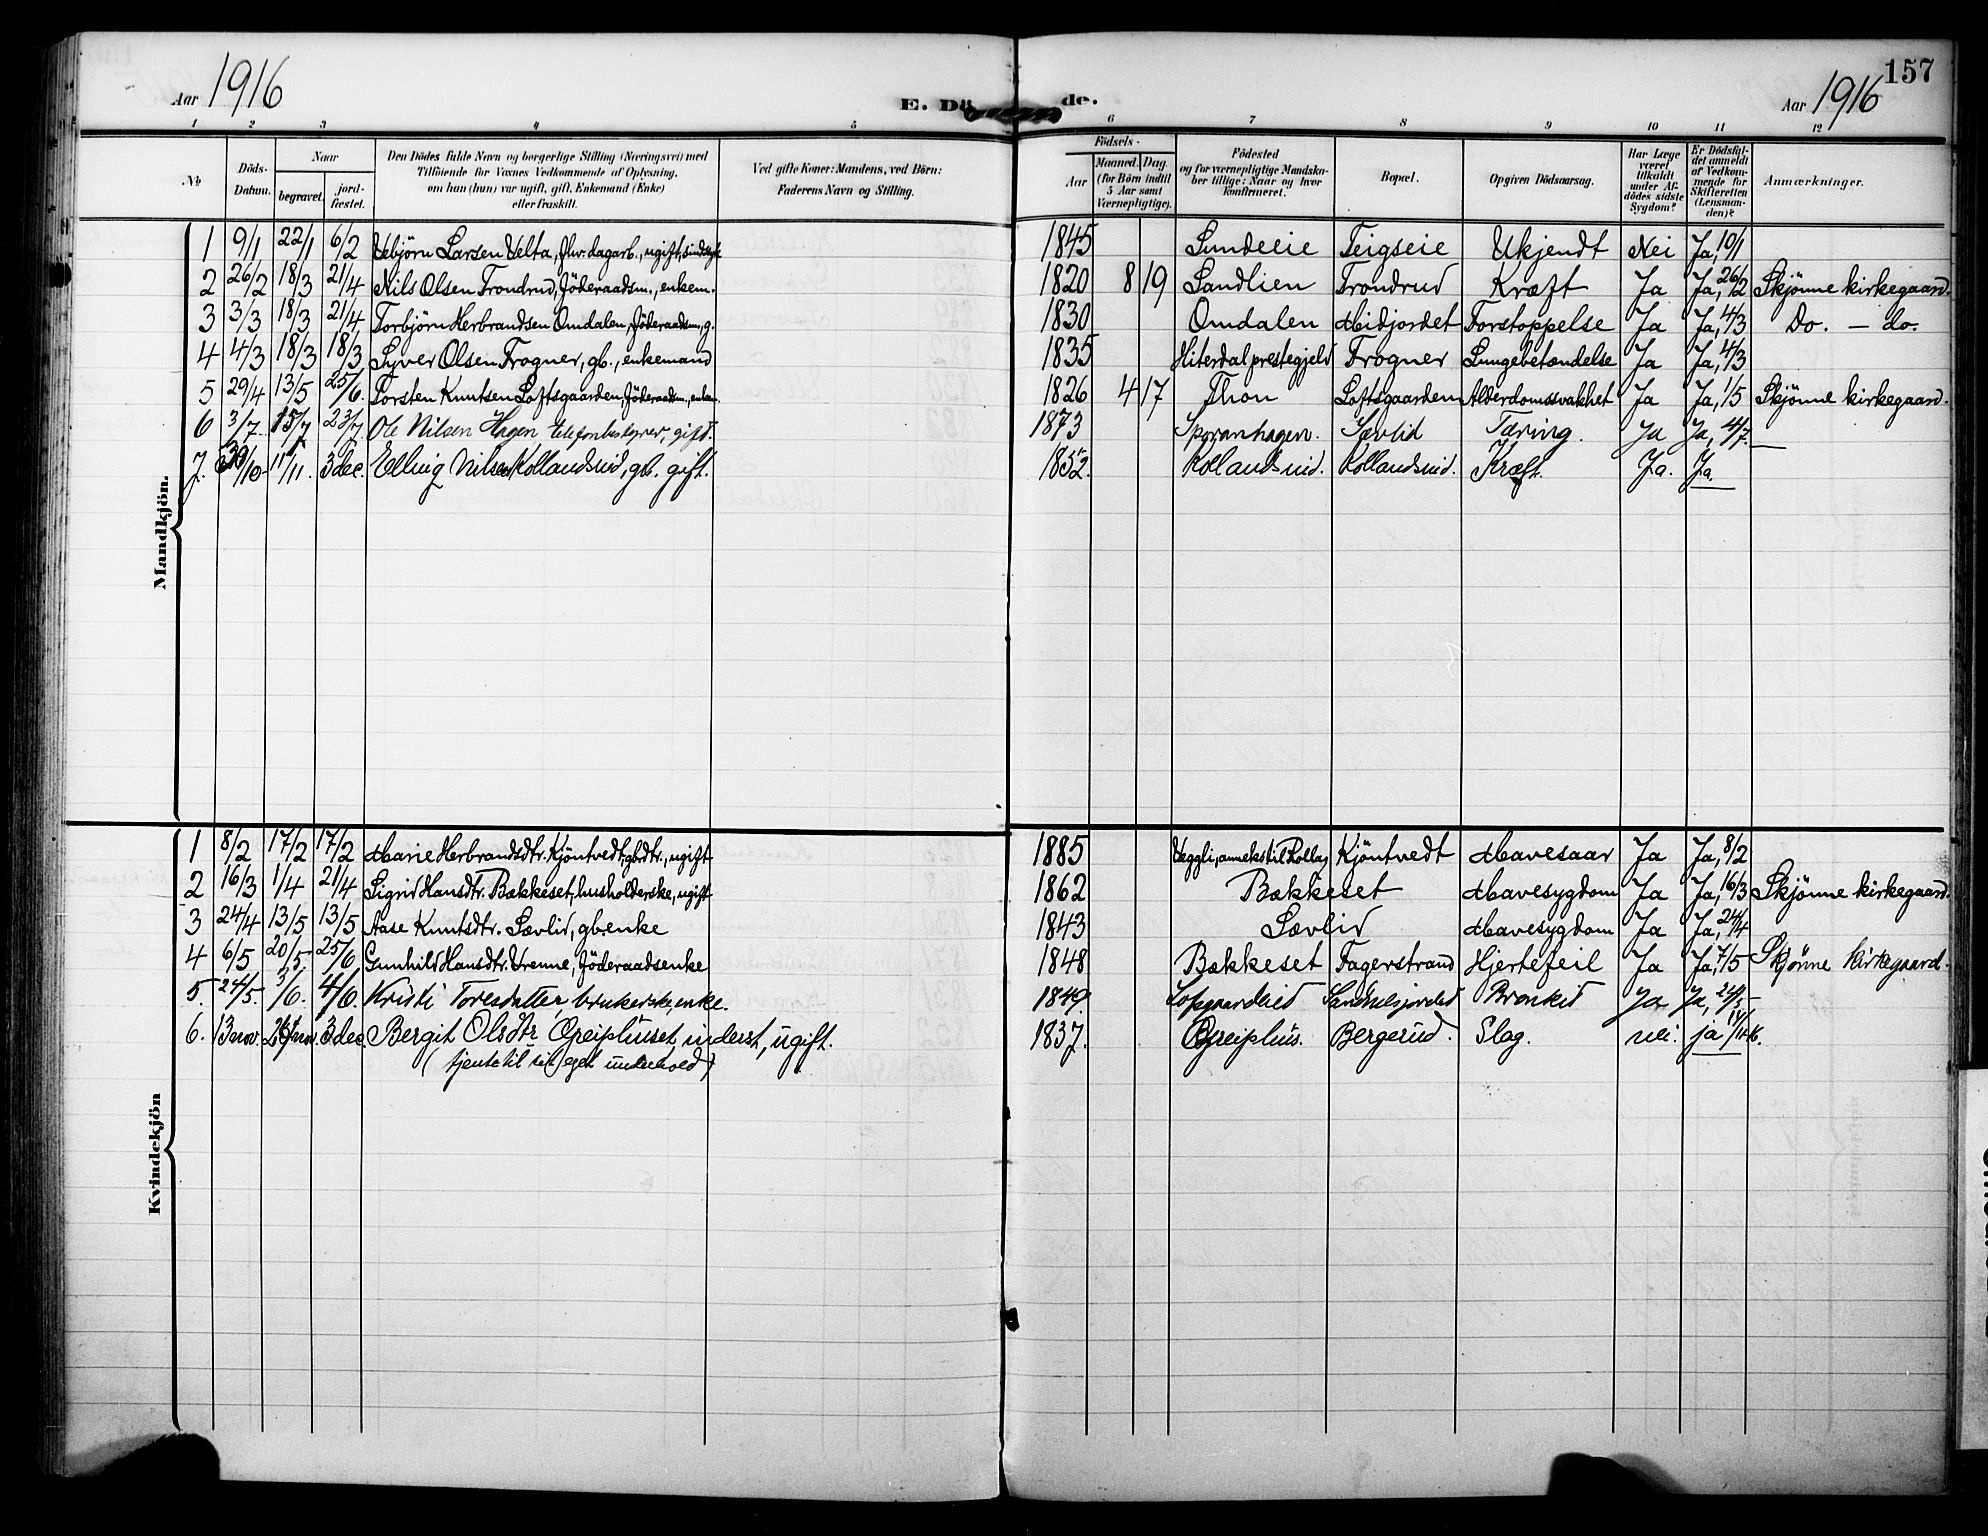 Aar 1916 E. Dö de. Aar 1916 157
1 2 3 4 5 6 7 8 9 10 11 12
No Döds-Datum. Naar begravet. jordfæstet. Den Dödes fulde Navn og borgerlige Stilling (Næringsvei) med Tilföiende for Voxnes Vedkommende af Oplysning, om han (hun) var ugift, gift, Enkemand (Enke) eller fraskilt. Ved gifte Koner: Mandens, ved Börn: Faderens Navn og Stilling. Födsels- Aar Maaned. Dag. (for Börn indtil 5 Aar samt Værnepligtige). Födested og for værnepligtige Mandskaber tillige: Naar og hvor konfirmeret. Bopæl. Opgiven Dödsaarsag. Har Læge været tilkaldt under Afdödes sidste Sygdom? Er Dödsfaldet anmeldt af Vedkommende for Skifteretten (Lensmanden)? Anmærkninger.
Mandkjön.
1 9/1 22/1 6/2 Vebjörn Larsen Velta, fhv. dagarb., ugift, sindssyk 1845 Lundeeie Teigseie Ukjendt Nei Ja, 10/1
2 26/2 18/3 21/4 Nils Olsen Trondrud, föderaadsm., enkem. 1820 8 19 Sandlien Trondrud Kræft Ja Ja, 26/2 Skjönne kirkegaard.
3 3/3 18/3 21/4 Torbjörn Herbrandsen Omdalen, föderaadsm., g. 1830 Omdalen Midjordet Forstoppelse Ja Ja, 4/3 Do. – do.
4 4/3 18/3 18/3 Syver Olsen Frogner, gb., enkemand 1835 Hiterdal prestegjeld Frogner Lungebetændelse Ja Ja, 4/3
5 29/4 13/5 25/6 Torsten Knutsen Loftsgaarden, föderaadsm., enkem. 1826 4 17 Thon Loftsgaarden Alderdomssvakhet Ja Ja, 1/5 Skjönne kirkegaard.
6 3/7 15/7 23/7 Ole Nilsen Hagen, telefonbestyrer, gift. 1873 Sporanhagen. Sævlid Tæring. Ja Ja, 4/7.
7. 30/10 11/11. 3 dec. Elling Nilsen Kollandsrud, gb. gift. 1852. Kollandsrud. Kollandsrud. Kræft. Ja. Ja.
Kvindekjön
1 8/2 17/2 17/2 Marie Herbrandsdtr. Kjöntvedt, gbdtr., ugift 1885 Veggli, anneks til Rollag Kjöntvedt Mavesaar Ja Ja, 8/2
2 16/3 1/4 21/4 Sigrid Hansdtr. Bækkeset, husholderske, ugift 1862 Bækkeset Mavesygdom Ja Ja, 16/3 Skjönne kirkegaard.
3 24/4 13/5 13/5 Aase Knutsdtr. Sævlid, gb.enke 1843 Sævlid Mavesygdom Ja Ja, 24/4
4 6/5 20/5 25/6 Gunhild Hansdtr. Vrenne, föderaadsenke 1848 Bækkeset Fagerstrand Hjertefeil Ja Ja, 7/5 Skjönne kirkegaard.
5. 24/5. 3/6. 4/6. Kristi Toresdatter, brukerske, enke. 1849. Bronkit Ja Ja, 24/5
6. 13 nov. nov. 3 dec. Bergit Olsdtr Greiphuset, inderst, ugift. 1837. Greiphus. Bergerud. Slag. nei. ja
(tjente til sit eget underhold)